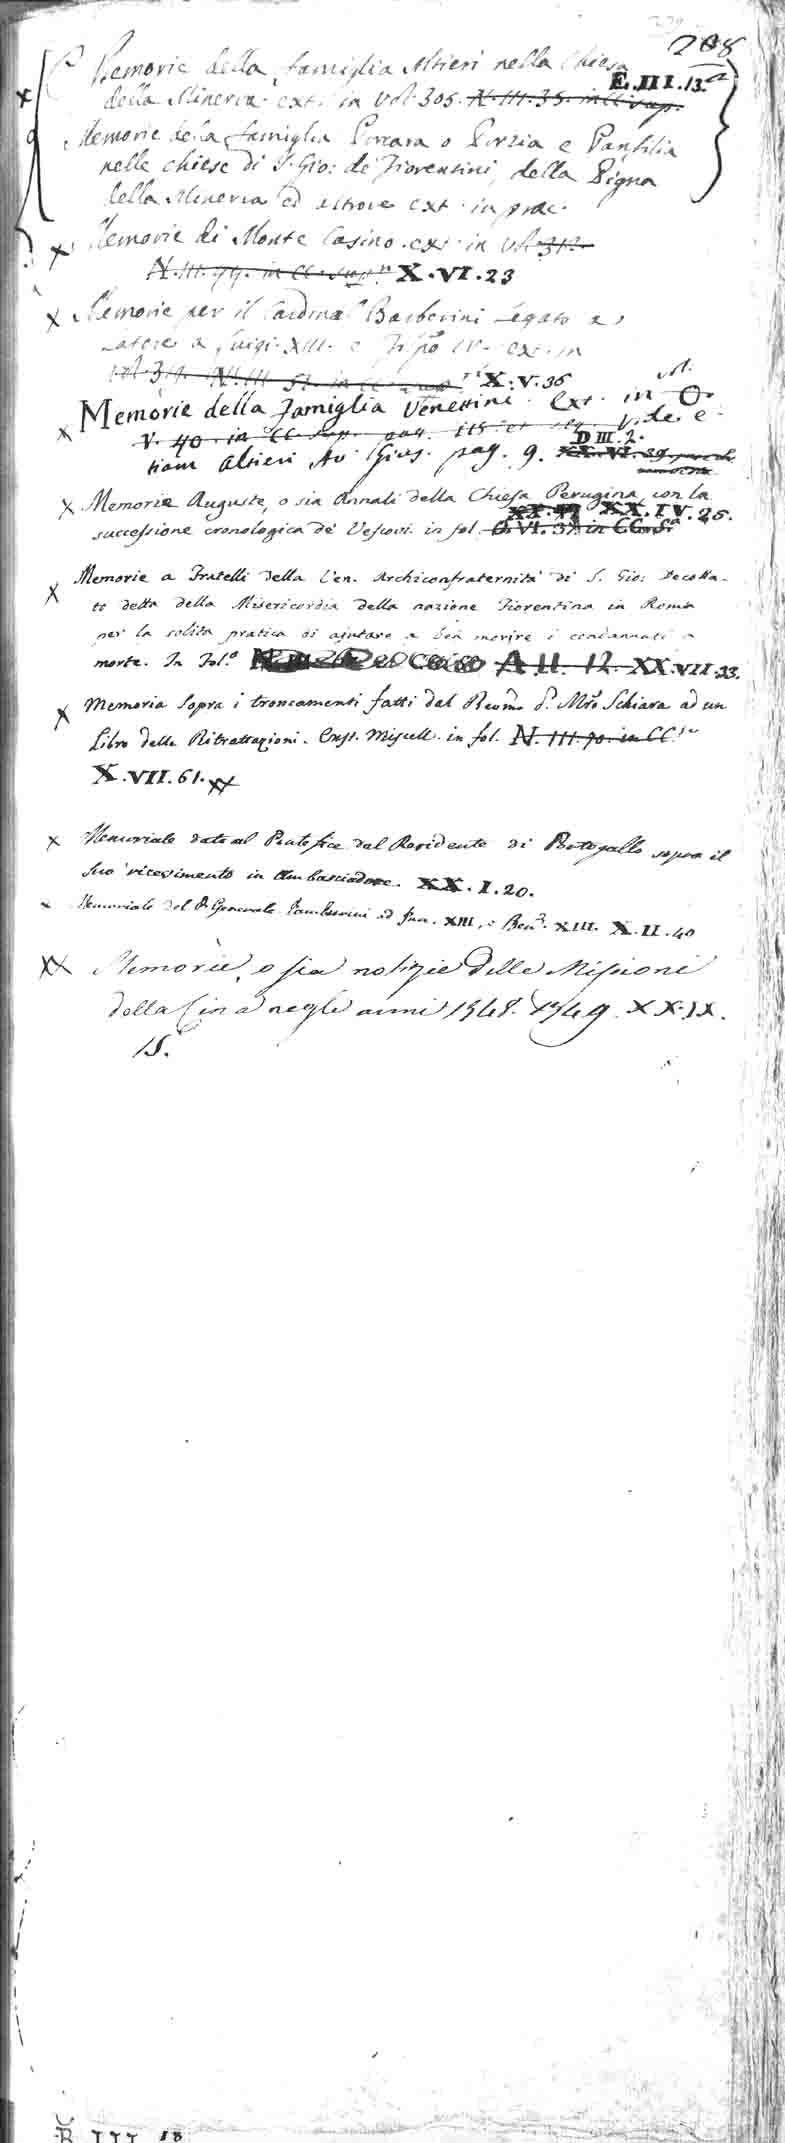 208
Memorie della famiglia Altieri nella Chiesa
E.III.13.a
della Minerva ext. in vol. 305. N.III.35. in CC sup.
Memorie della famiglia Porcara o Porzia e Panfilia
nelle chiese di S. Gio: de' Fiorentini, della Pigna
della Minerva ed altrove ext. in prae.
x Memorie di Monte Casino. ext. in vol. 312.
N.III.99. in CC. sup.rr X.VI.23
x Memorie per il Cardinal Barberini Legato a
Latere a Luigi XIII. e Fi'ppo IV. ext. in
vol. 319. N.III.51. in CC X.V.36
x Memorie della Famiglia Venettini. Ext. in vol. O.
V. 40. in CC. sup. pag. 115. et seq. Vide e
D III. 2.
tiam Altieri Av. Gius. pag. 9. XX.VI.39
x Memorie Auguste, o sia Annali della Chiesa Perugina, con la
XX.49 XX.IV.25.
successione cronologica de' Vescovi. in fol. O.VI.37. in CC.S.a
x Memorie a Fratelli della Ven. Archiconfraternità di S. Gio: Decolla-
to detta della Misericordia della nazione Fiorentina in Roma
per la solita pratica di ajutare a ben morire i condannati a
morte. In Fol.o A.II. 12. XX.VII.33.
x Memoria Sopra i troncamenti fatti dal Revmo P. Mro Schiara ad un
Libro delle Ritrattazioni. Enst. Miscell. in fol. N.III.70. in CC.
X.VII.61. xx
x Memoriale dato al Pontefice dal Residente di Portogallo sopra il
suo ricevimento in Ambasciadore. XX.I.20.
Memoriale del P. Generale Tamburini ad Inn. XIII, e Ben. XIII. X.II.40
xx Memorie, o sia notizie delle Missioni
della Cina negli anni 1748. 1749. XX.IX.
15.
B III 18